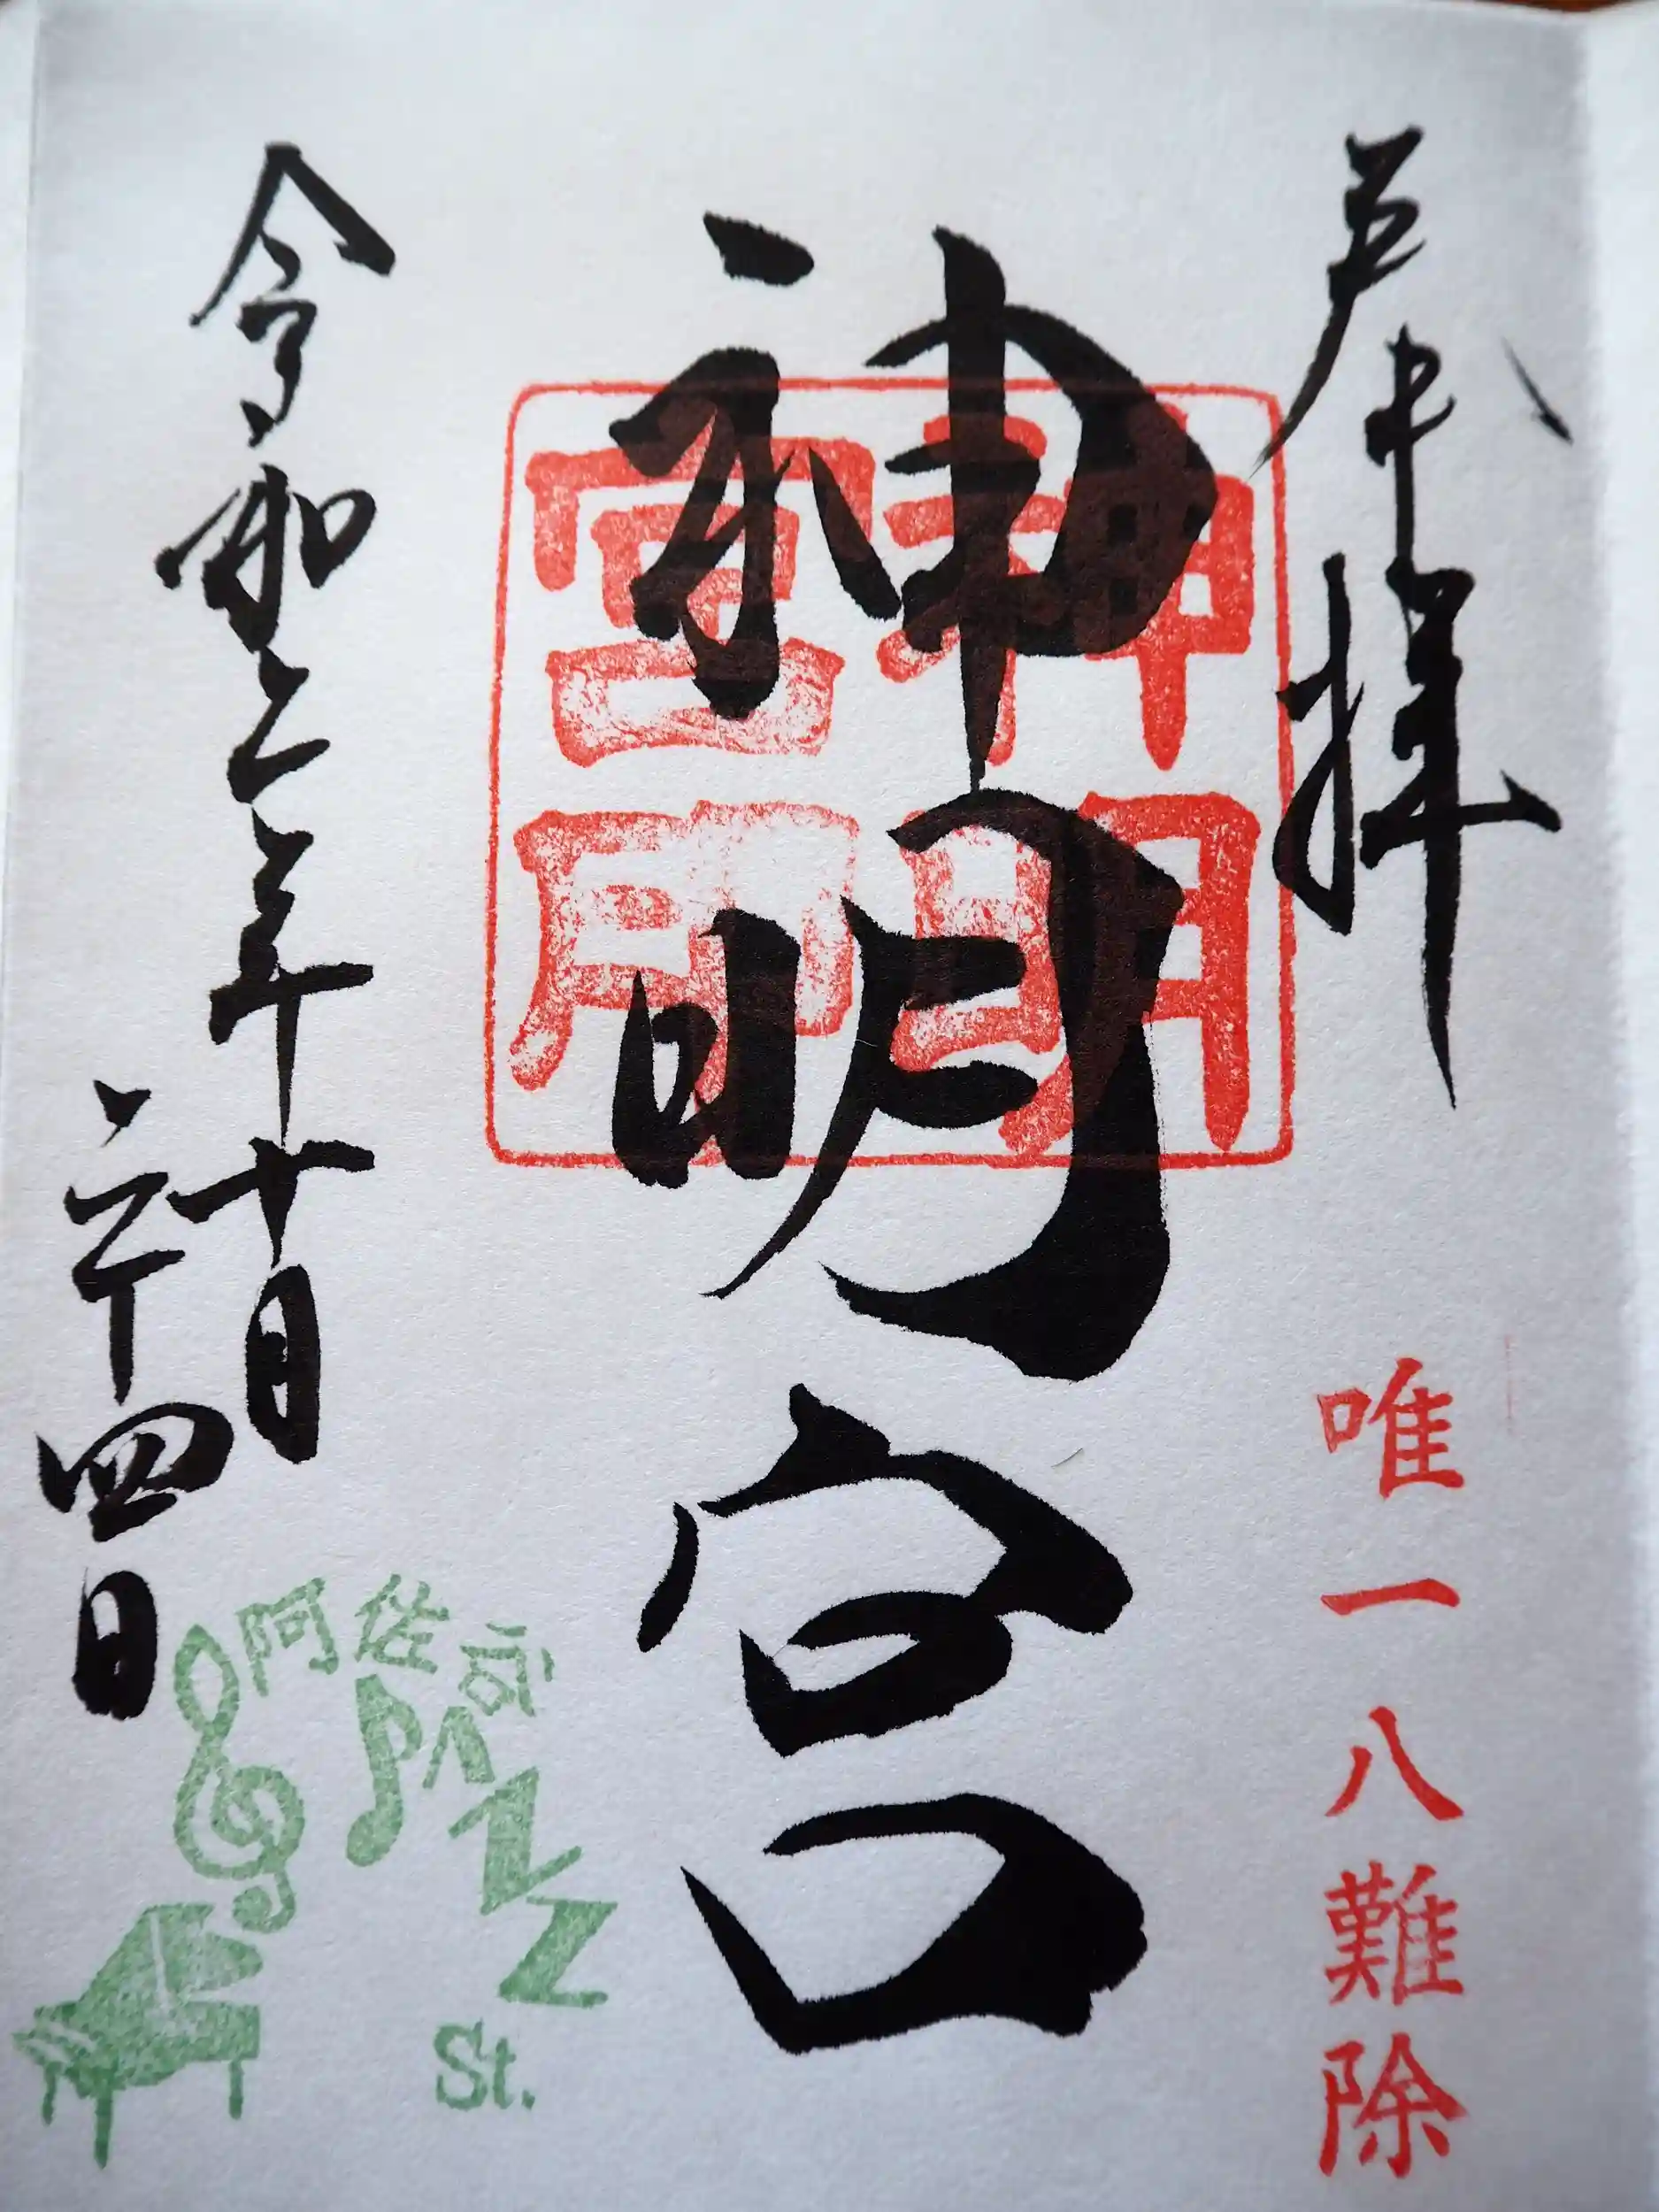 奉拝
唯一八難除
神明宮
神明宮印
令和二年十月
二十四日
阿佐谷
JAZZ
St.